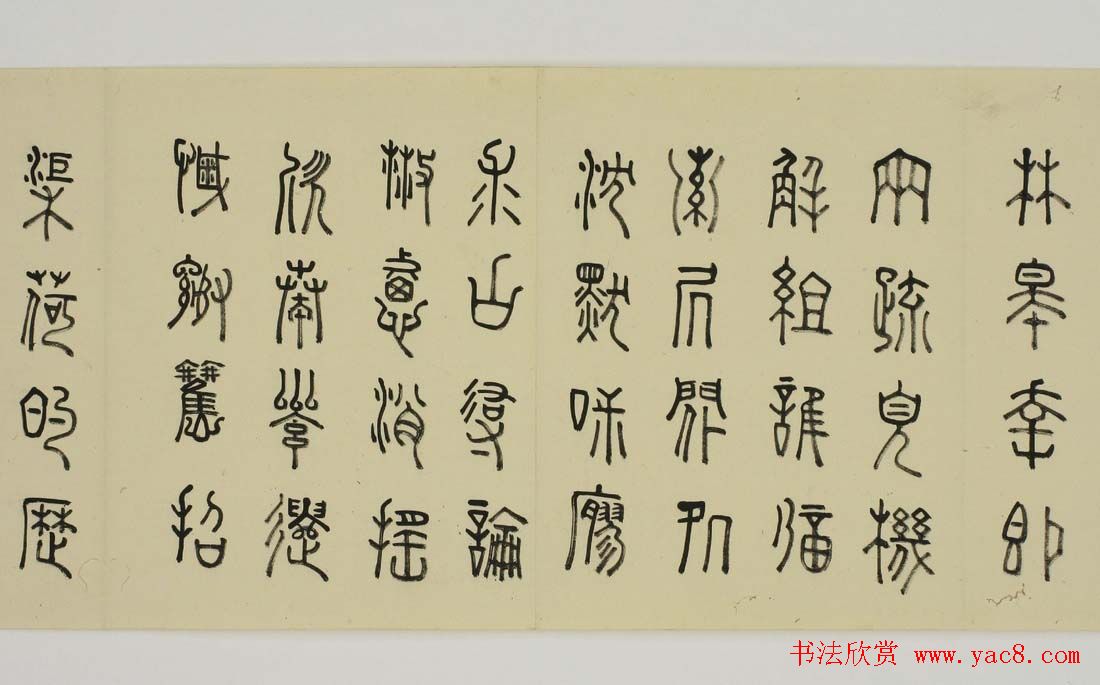 林皋幸即
兩疏見機
解組誰逼
索居閒處
沈默寂寥
求古尋論
散慮逍遙
欣奏累遣
慼謝歡招
渠荷的歷
书法欣赏 www.yac8.com